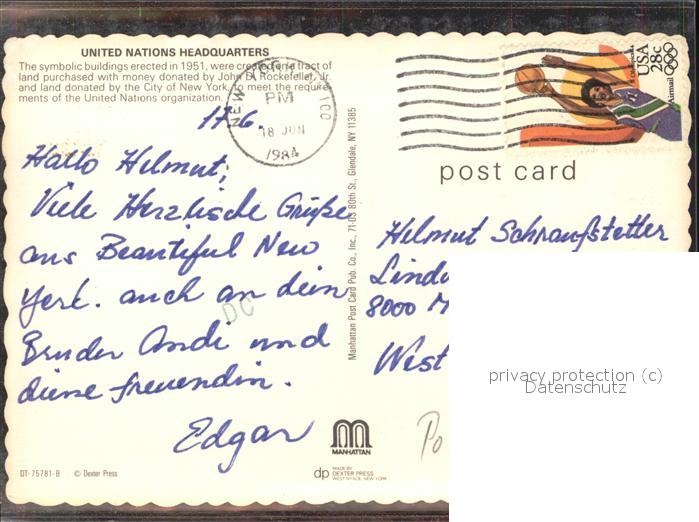 UNITED NATIONS HEADQUARTERS
The symbolic buildings erected in 1951, were created on a tract of
land purchased with money donated by John D. Rockefeller, Jr.
and land donated by the City of New York, to meet the require-
ments of the United Nations organization.
NEW YORK, NY 100
PM
18 JUN
1984
USA
28c
Airmail
post card
17.6
Hallo Helmut;
Viele Herzlische Grüße
aus Beautiful New
York. auch an dein
Bruder Andi und
deine freuendin.
Edgar
DC
Manhattan Post Card Pub. Co., Inc., 71-03 80th St., Glendale, NY 11385
Helmut Schraufstetter
Lind
8000 M
West
Po
privacy protection (c)
Datenschutz
MANHATTAN
DT-75781-B © Dexter Press
dp MADE BY
DEXTER PRESS
WEST NYACK, NEW YORK